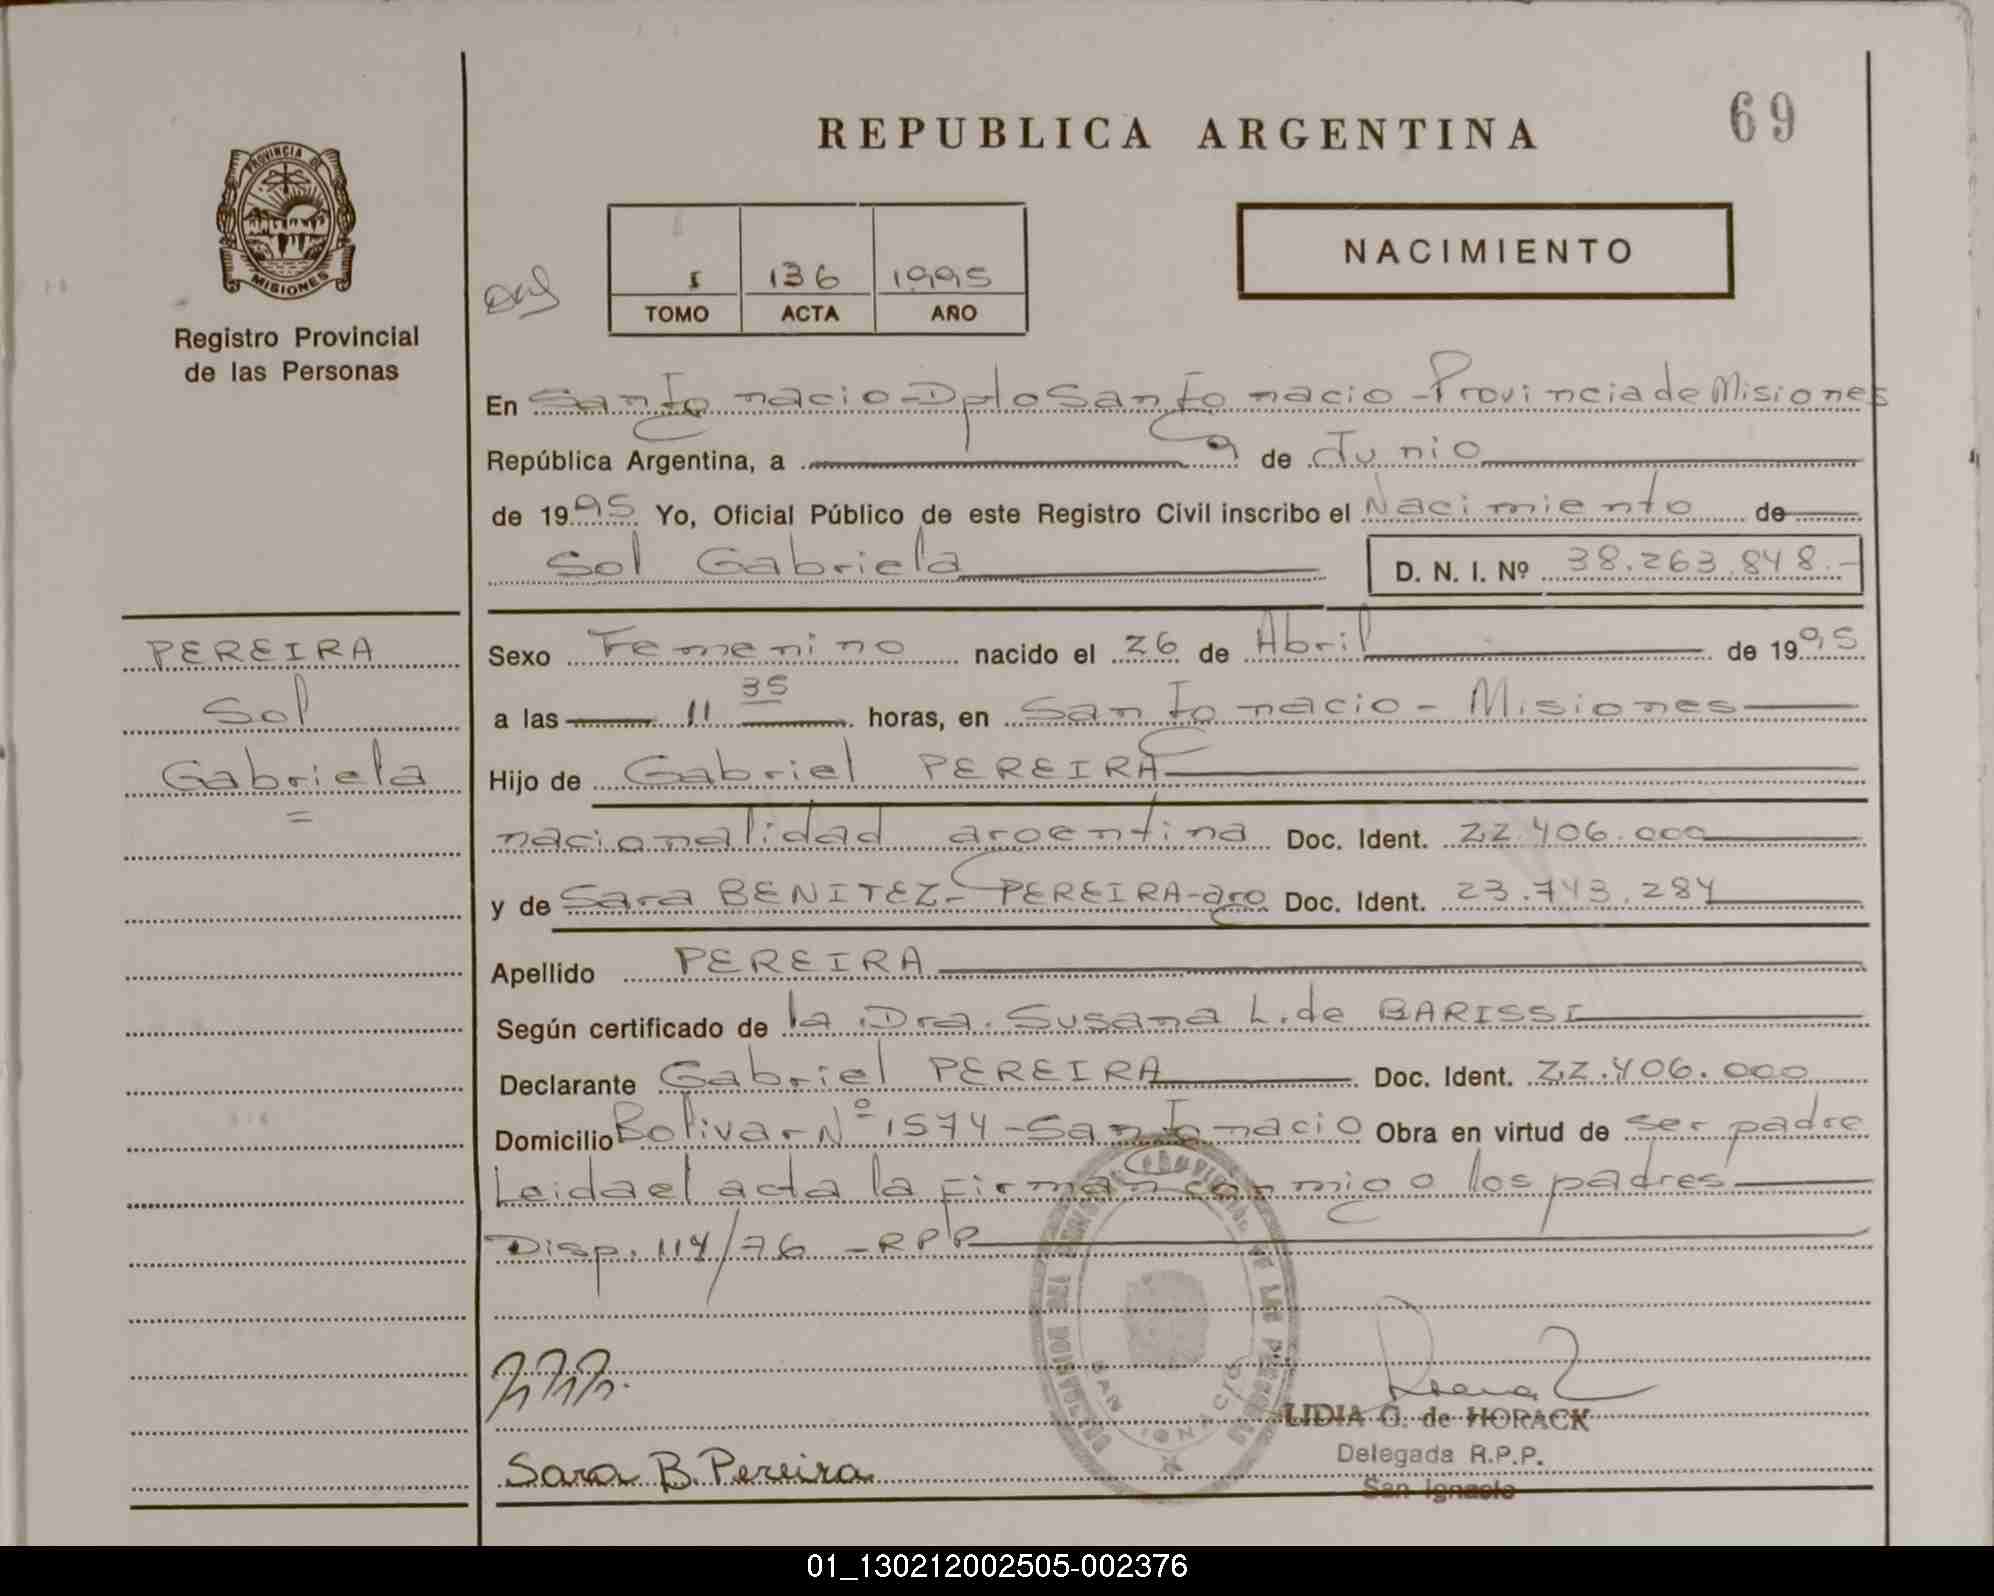 REPUBLICA ARGENTINA
69
PROVINCIA DE
MISIONES
Registro Provincial
de las Personas
I 136 1995
TOMO ACTA AÑO
NACIMIENTO
En San Ignacio - Dpto San Ignacio - Provincia de Misiones
República Argentina, a 9 de Junio
de 1995 Yo, Oficial Público de este Registro Civil inscribo el Nacimiento de
Sol Gabriela D. N. I. Nº 38.263.848.-
PEREIRA
Sol
Gabriela
=
Sexo Femenino nacido el 26 de Abril de 1995
a las 11 35 horas, en San Ignacio - Misiones
Hijo de Gabriel PEREIRA
nacionalidad argentina Doc. Ident. 22.406.000
y de Sara BENITEZ - PEREIRA - arg Doc. Ident. 23.743.284
Apellido PEREIRA
Según certificado de la Dra. Susana L. de BARISSI
Declarante Gabriel PEREIRA Doc. Ident. 22.406.000
Domicilio Bolivar Nº 1574 - San Ignacio Obra en virtud de ser padre
Leida el acta la firman conmigo los padres
Disp. 114/76 - RPP
Sara B. Pereira
LIDIA G. de HORACK
Delegada R.P.P.
San Ignacio
01_130212002505-002376